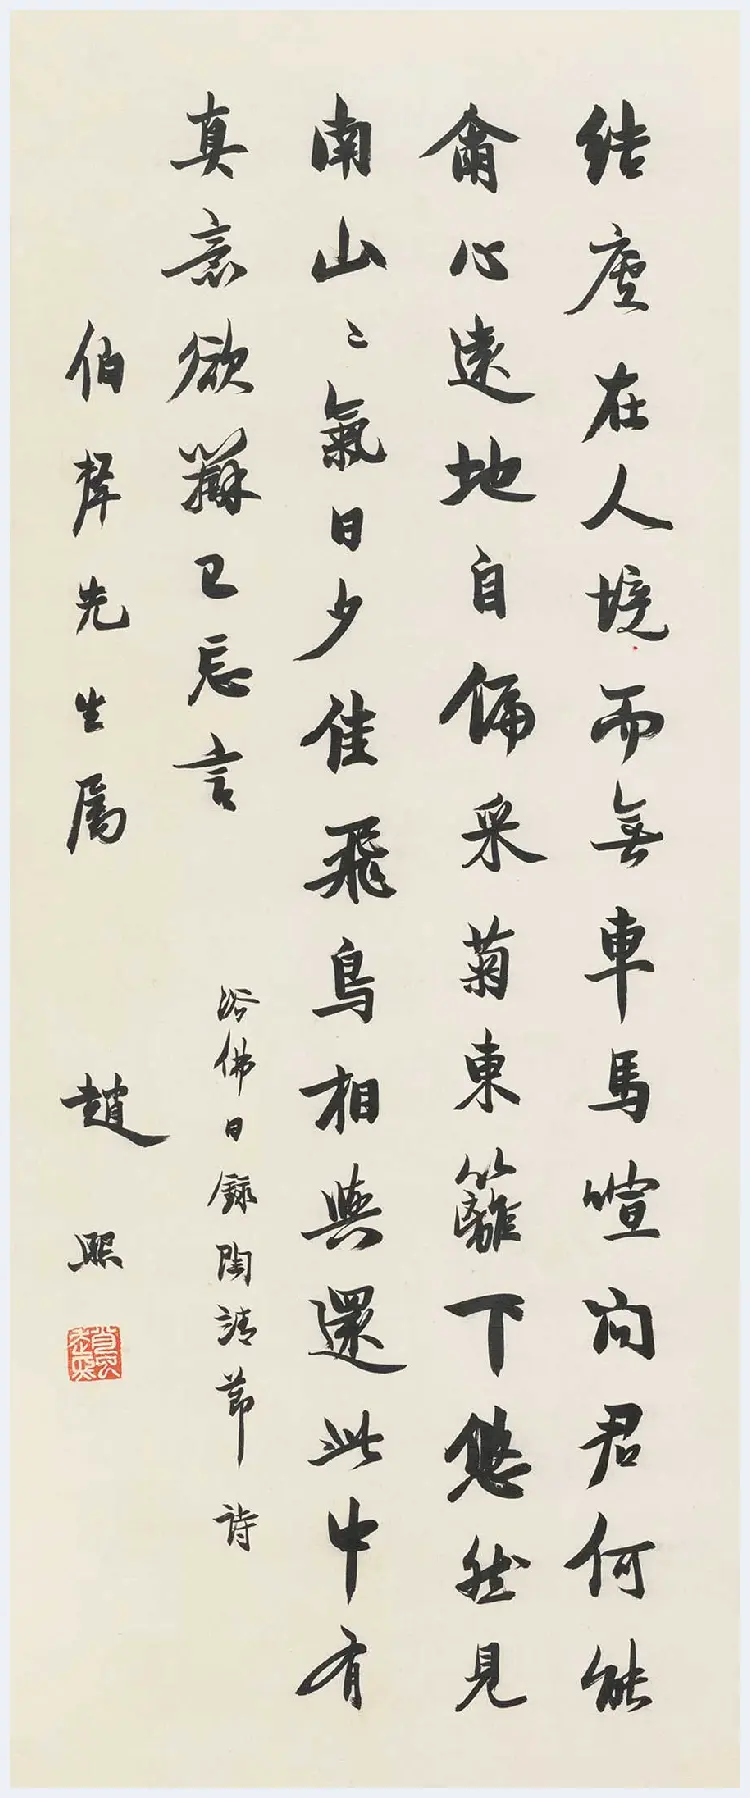 結廬在人境而無車馬喧問君何能
爾心遠地自偏采菊東籬下悠然見
南山〻氣日夕佳飛鳥相與還此中有
真意欲辯已忘言
浴佛日錄陶靖節詩
伯先生属
趙熙